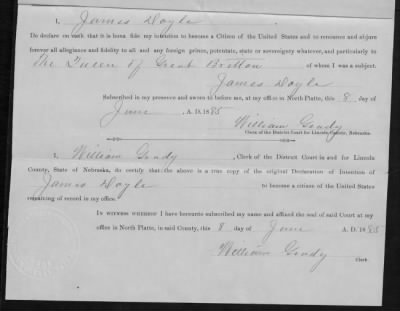 I, James Doyle
Do declare on oath that it is bona fide my intention to become a Citizen of the United States and to renounce and abjure
forever all allegiance and fidelity to all and any foreign prince, potentate, state or sovereignty whatever, and particularly to
The Queen of Great Britton of whom I was a subject.
James Doyle
Subscribed in my presence and sworn to before me, at my office in North Platte, this 8 day of
June, A.D. 1885
William Grady
Clerk of the District Court for Lincoln County, Nebraska.
I, William Grady, Clerk of the District Court in and for Lincoln
County, State of Nebraska, do certify that the above is a true copy of the original Declaration of Intention of
James Doyle to become a citizen of the United States
remaining of record in my office.
IN WITNESS WHEREOF I have hereunto subscribed my name and affixed the seal of said Court at my
office in North Platte, in said County, this 8 day of June A.D. 1885
William Grady
Clerk.